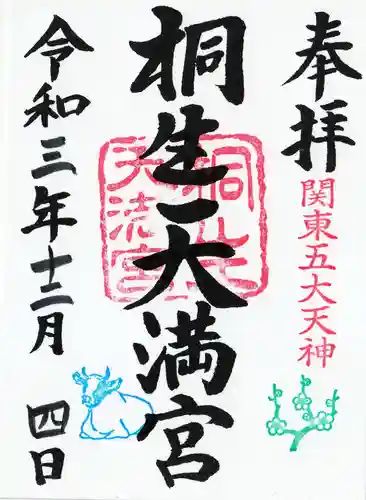 奉拝
関東五大天神
桐生天満宮
令和三年十二月 四日